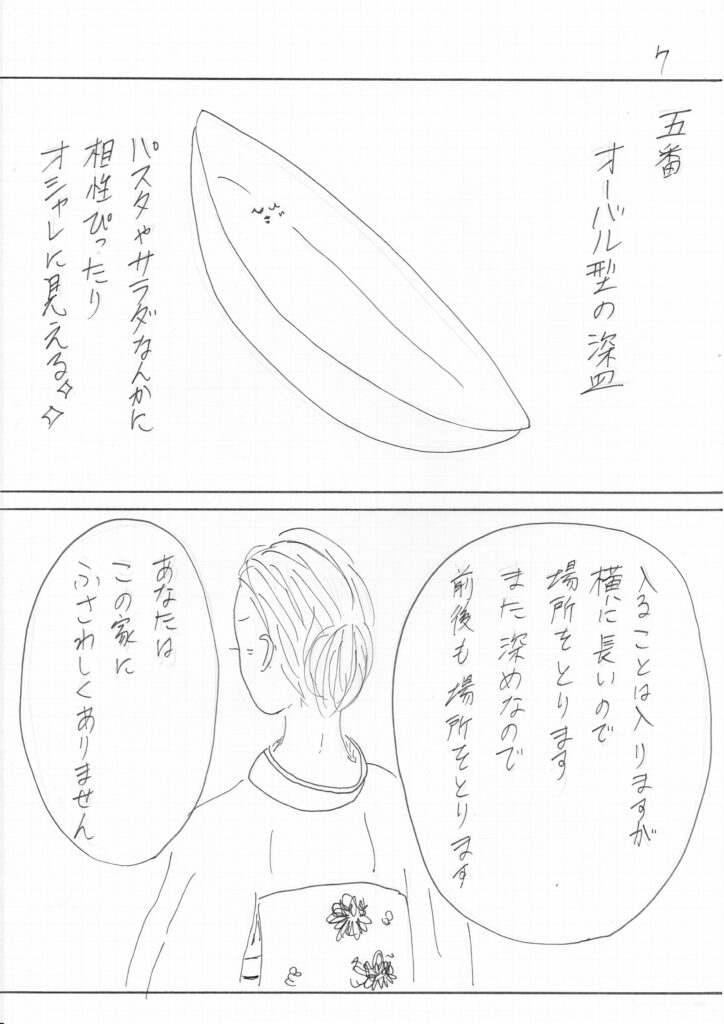 7
五番
オーバル型の深皿
パスタやサラダなんかに
相性ぴったり
オシャレに見える
入ることは入りますが
横に長いので
場所をとります
また深めなので
前後も場所をとります
あなたは
この家に
ふさわしくありません